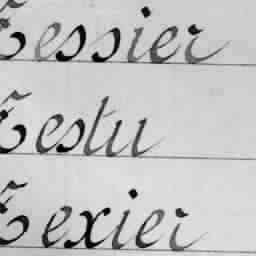 Tessier
Testu
Texier